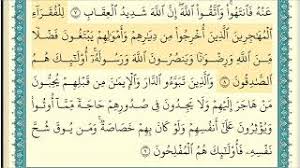 عَنْهُ فَٱنتَهُوا۟ وَٱتَّقُوا۟ ٱللَّهَ إِنَّ ٱللَّهَ شَدِيدُ ٱلْعِقَابِ ٧ لِلْفُقَرَآءِ
ٱلْمُهَـٰجِرِينَ ٱلَّذِينَ أُخْرِجُوا۟ مِن دِيَـٰرِهِمْ وَأَمْوَٰلِهِمْ يَبْتَغُونَ فَضْلًا
مِّنَ ٱللَّهِ وَرِضْوَٰنًا وَيَنصُرُونَ ٱللَّهَ وَرَسُولَهُۥٓ أُو۟لَـٰٓئِكَ هُمُ
ٱلصَّـٰدِقُونَ ٨ وَٱلَّذِينَ تَبَوَّءُو ٱلدَّارَ وَٱلْإِيمَـٰنَ مِن قَبْلِهِمْ يُحِبُّونَ
مَنْ هَاجَرَ إِلَيْهِمْ وَلَا يَجِدُونَ فِى صُدُورِهِمْ حَاجَةً مِّمَّآ أُوتُوا۟
وَيُؤْثِرُونَ عَلَىٰٓ أَنفُسِهِمْ وَلَوْ كَانَ بِهِمْ خَصَاصَةٌ وَمَن يُوقَ شُحَّ
نَفْسِهِۦ فَأُو۟لَـٰٓئِكَ هُمُ ٱلْمُفْلِحُونَ ٩